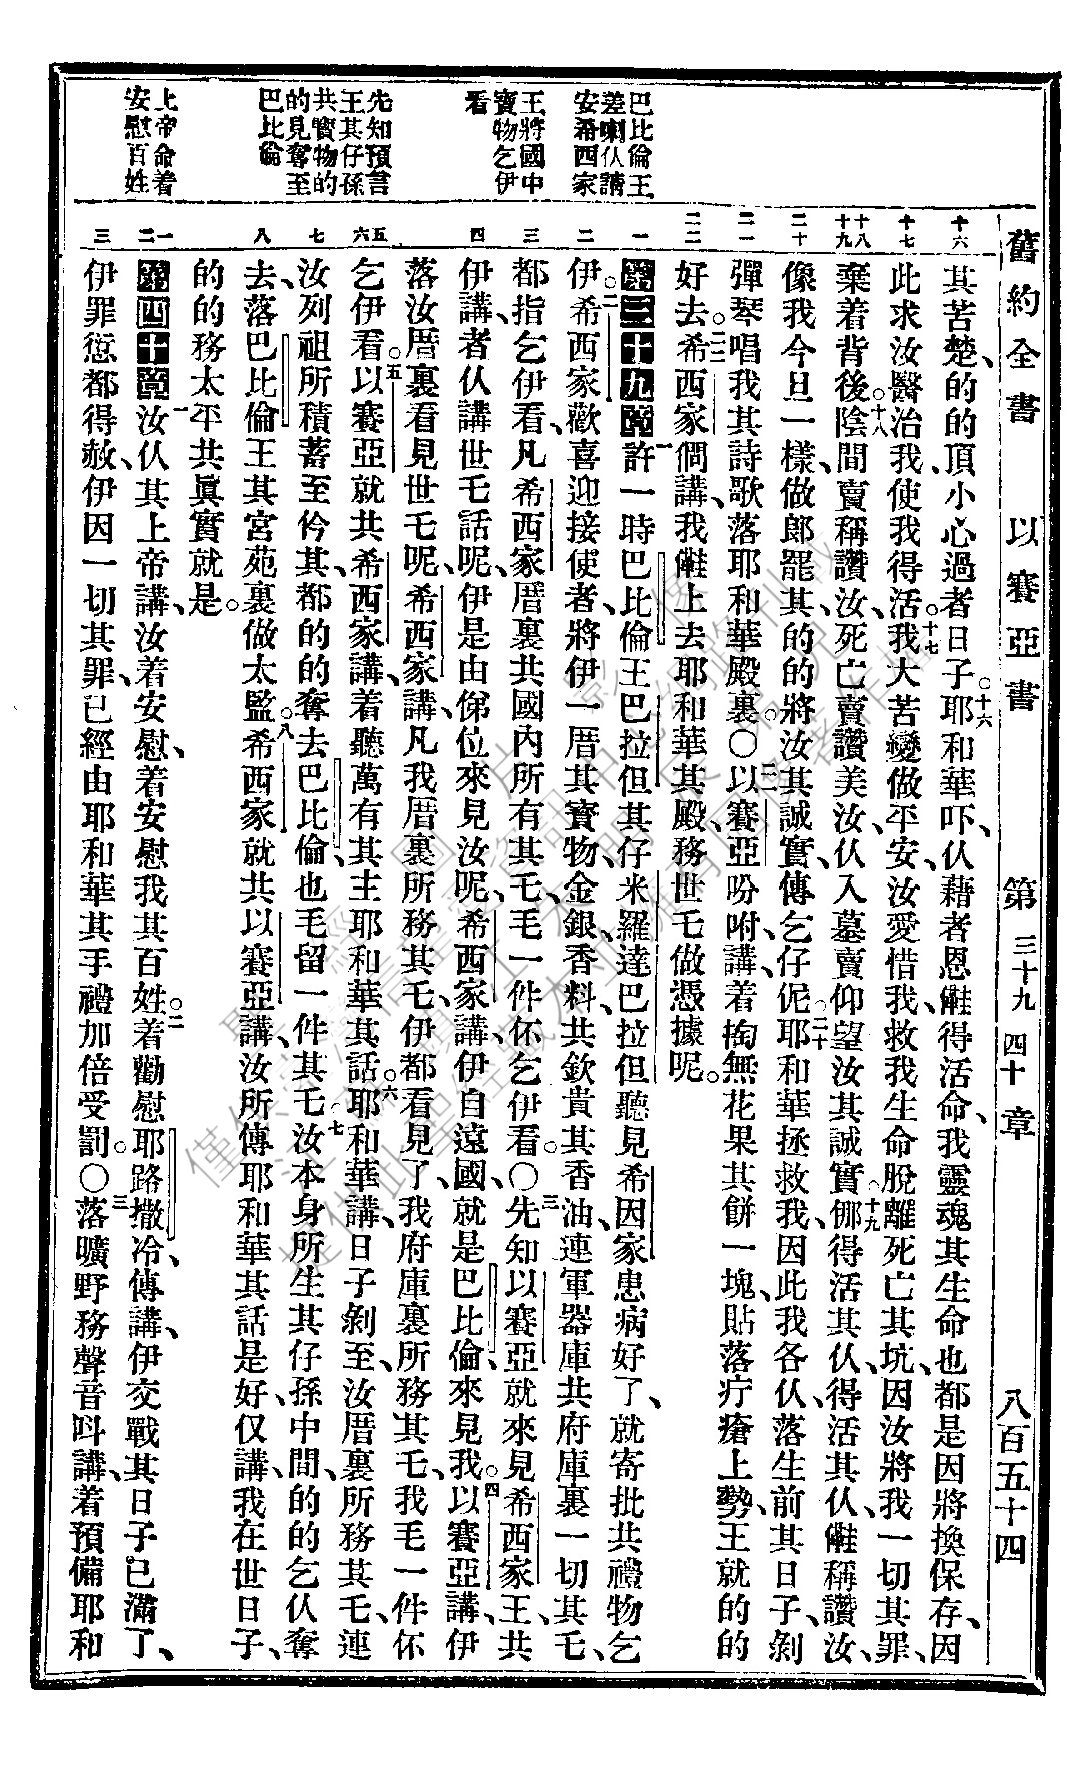 舊約全書 以賽亞書 第三十九 四十章 八百五十四
十六
其苦楚、的的頂小心過者日子。十六耶和華吓、仈藉者恩、僅得活命、我靈魂其生命也都是因將換保存、因
十七
此求汝醫治我、使我得活。十七我大苦變做平安、汝愛惜我、救我生命脫離死亡其坑、因汝將我一切其罪、
十八 十九
棄着背後。十八陰間賣稱讚汝、死亡賣讚美汝、仈入墓賣仰望汝其誠實。十九倻得活其仈、得活其仈、僅稱讚汝、
二十
像我今旦一樣、做郎罷其、的的將汝其誠實、傳乞仔伲。二十耶和華拯救我、因此我各仈落生前其日子、剝
二一
彈琴唱我其詩歌落耶和華殿裏。〇二一以賽亞吩咐講、着掏無花果其餅一塊、貼落疔瘡上勢、王就的的
二二
好去。二二希西家倜講、我僅上去耶和華其殿、務世乇做憑據呢。
一
第三十九章 一許一時巴比倫王巴拉但其仔米羅達巴拉但聽見希因家患病好了、就寄批共禮物乞
二
伊。二希西家歡喜迎接使者、將伊一厝其寶物、金銀香料、共欽貴其香油、連軍器庫共府庫裏一切其乇、
三
都指乞伊看、凡希西家厝裏共國內所有其乇、乇一件伓乞伊看。〇三先知以賽亞就來見希西家王、共
四
伊講、者仈講世乇話呢、伊是由俤位來見汝呢、希西家講、伊自遠國、就是巴比倫、來見我。四以賽亞講、伊
落汝厝裏看見世乇呢、希西家講、凡我厝裏所務其乇、伊都看見了、我府庫裏所務其乇、我毛一件伓
五 六
乞伊看。五以賽亞就共希西家講、着聽萬有其主耶和華其話。六耶和華講、日子剝至、汝厝裏所務其乇、連
七
汝列祖所積蓄至伶其、都的的奪去巴比倫、也毛留一件其乇。七汝本身所生其仔孫中間、的的乞仈奪
八
去、落巴比倫王其宮苑裏做太監。八希西家就共以賽亞講、汝所傳耶和華其話是好、仅講、我在世日子、
的的務太平共眞實就是。
一 二
第四十章 一汝仈其上帝講、汝着安慰、着安慰我其百姓。二着勸慰耶路撒冷、傳講、伊交戰其日子已滿了、
三
伊罪愆都得赦、伊因一切其罪、已經由耶和華其手禮加倍受罰。〇三落曠野務聲音叫講、着預備耶和
巴比倫王
差喇仈請
安希西家
王將國中
寶物乞伊
看
先知預言
王其仔孫
共寶物的
的見奪至
巴比倫
上帝命着
安慰百姓